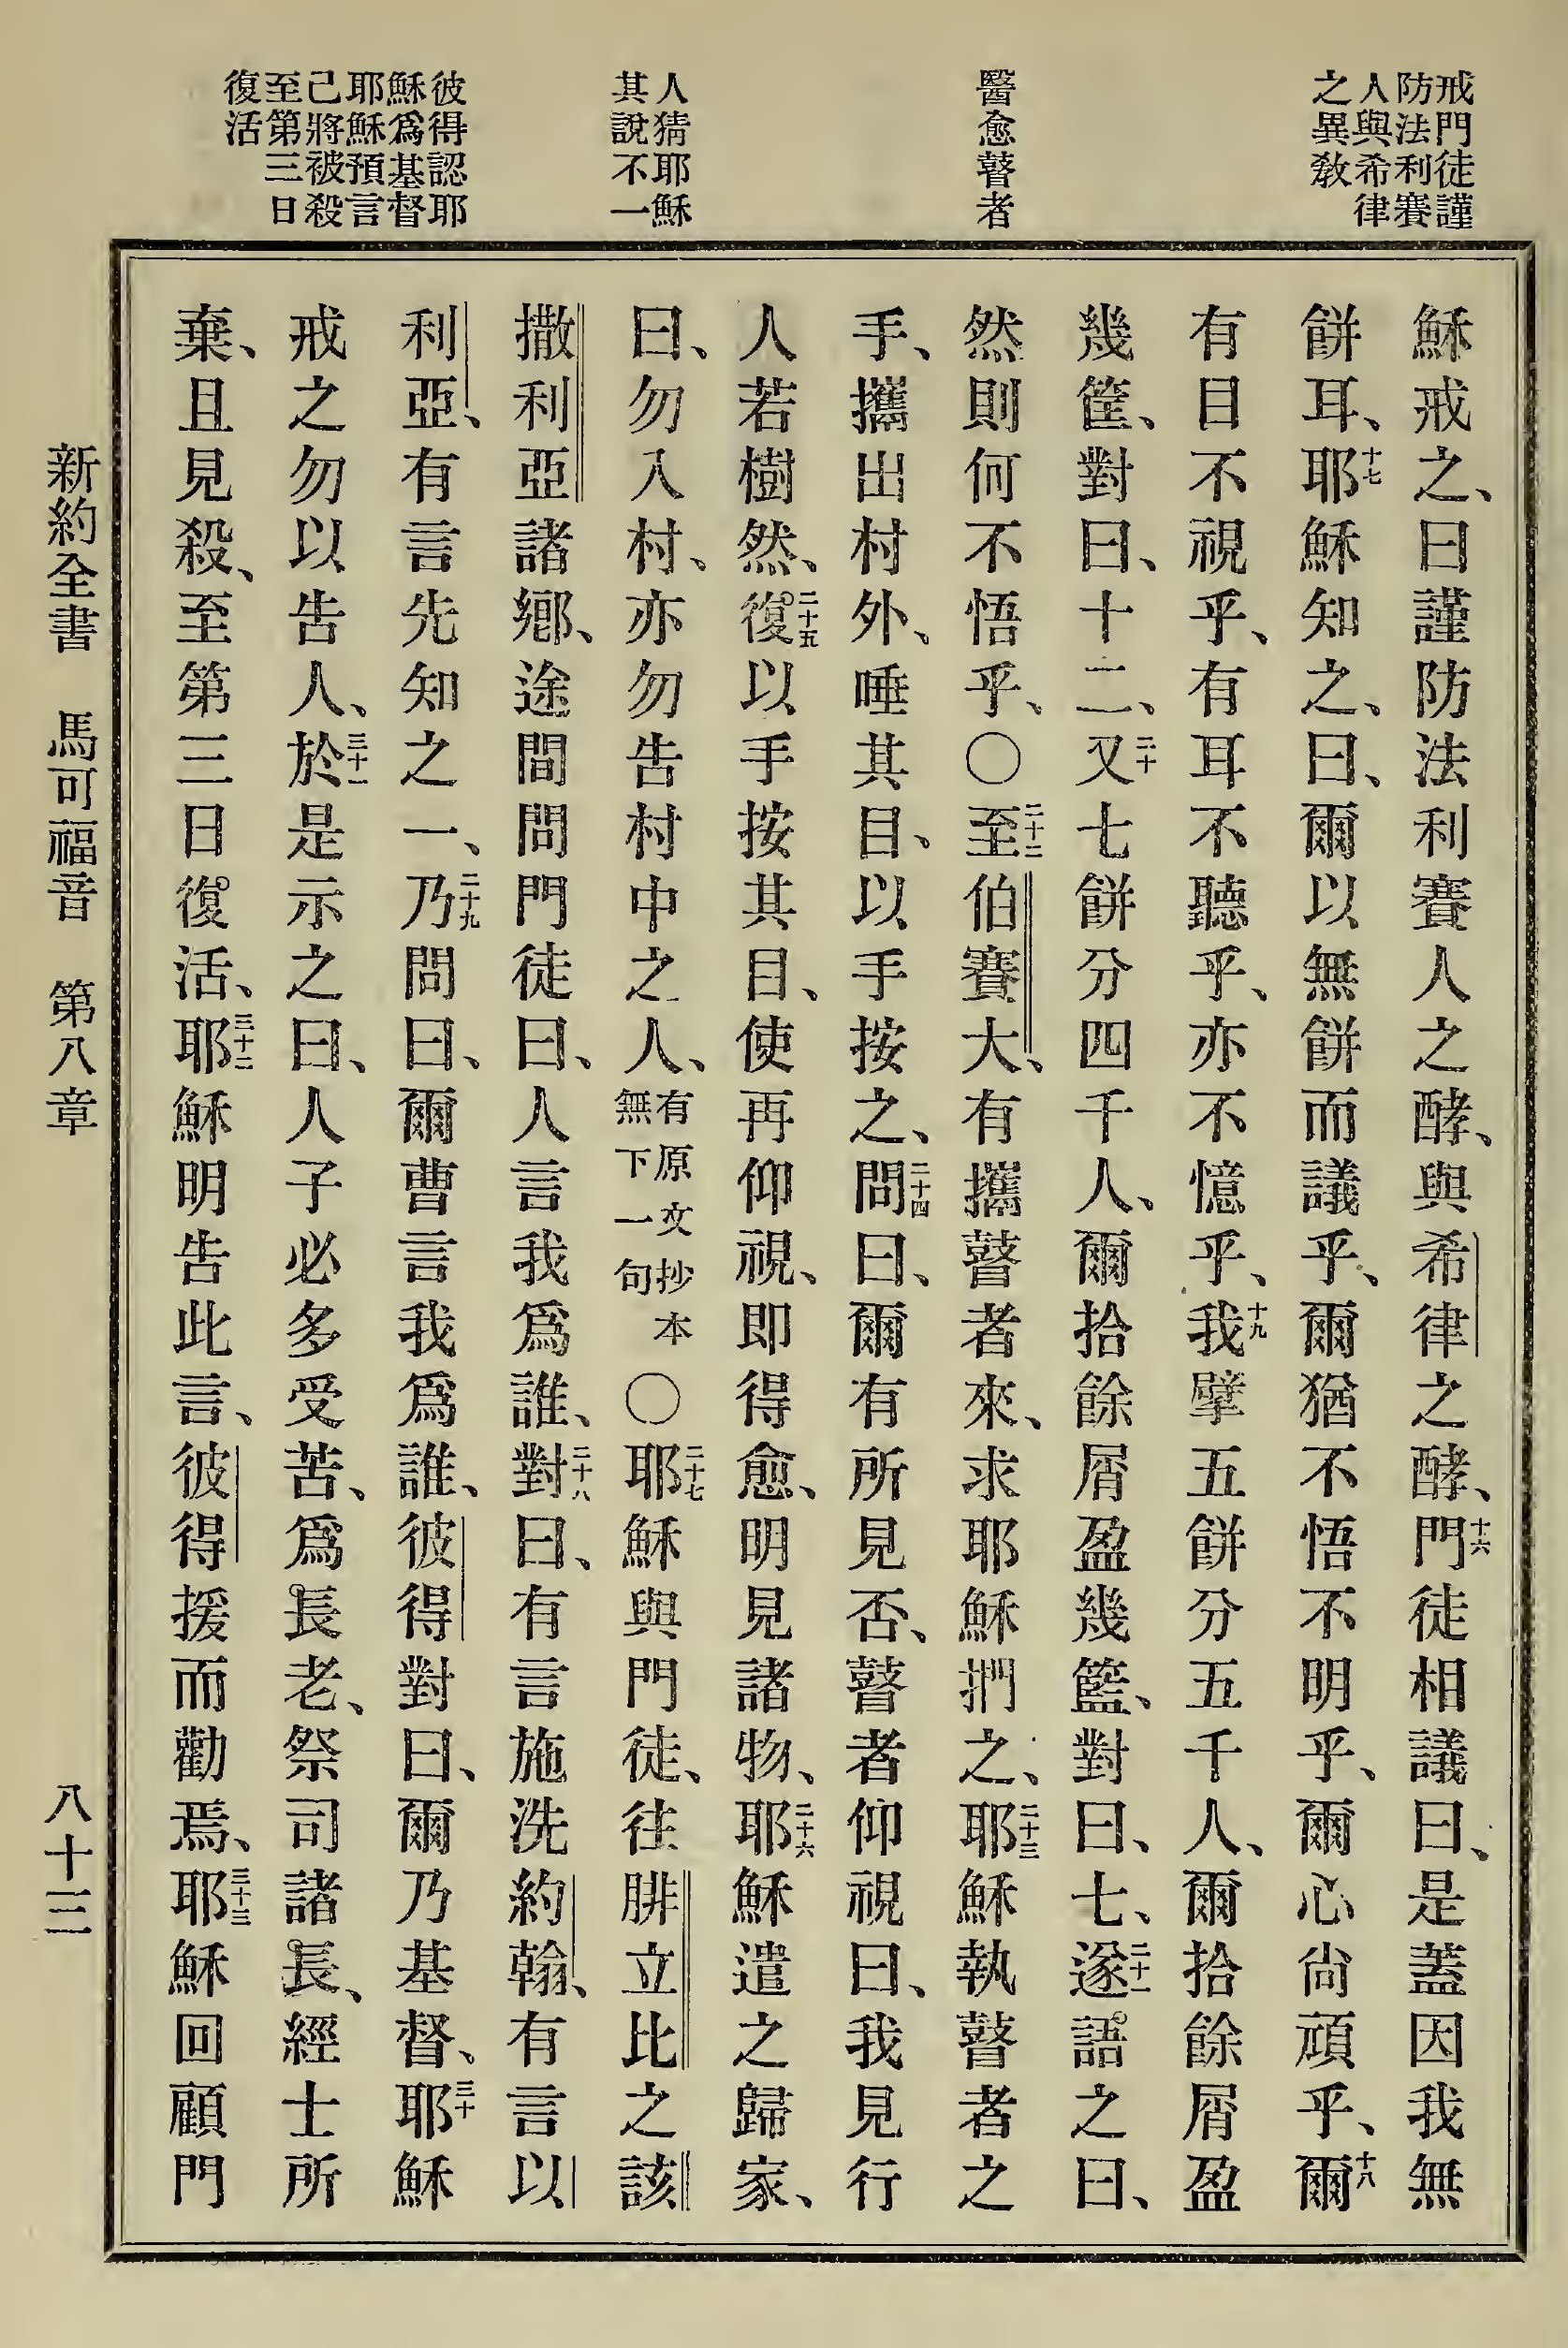 戒門徒謹
防法利賽
人與希律
之異敎
醫愈瞽者
人猜耶穌
其說不一
彼得認耶
穌爲基督
耶穌預言
己將被殺
至第三日
復活
穌戒之、曰謹防法利賽人之酵、與希律之酵、十六門徒相議曰、是蓋因我無
餅耳、十七耶穌知之、曰、爾以無餅而議乎、爾猶不悟不明乎、爾心尙頑乎、十八爾
有目不視乎、有耳不聽乎、亦不憶乎、十九我擘五餅分五千人、爾拾餘屑盈
幾筐、對曰、十二、二十又七餅分四千人、爾拾餘屑盈幾籃、對曰、七、二十一遂語之曰、
然則何不悟乎、〇二十二至伯賽大、有攜瞽者來、求耶穌捫之、二十三耶穌執瞽者之
手、攜出村外、唾其目、以手按之、二十四問曰、爾有所見否、瞽者仰視曰、我見行
人若樹然、二十五復以手按其目、使再仰視、即得愈、明見諸物、二十六耶穌遣之歸家、
曰、勿入村、亦勿告村中之人、有原文抄本無下一句〇二十七耶穌與門徒、往腓立比之該
撒利亞諸鄉、途間問門徒曰、人言我爲誰、二十八對曰、有言施洗約翰、有言以
利亞、有言先知之一、二十九乃問曰、爾曹言我爲誰、彼得對曰、爾乃基督、三十耶穌
戒之勿以告人、三十一於是示之曰、人子必多受苦、爲長老、祭司諸長、經士所
棄、且見殺、至第三日復活、三十二耶穌明告此言、彼得援而勸焉、三十三耶穌回顧門
新約全書 馬可福音 第八章 八十三